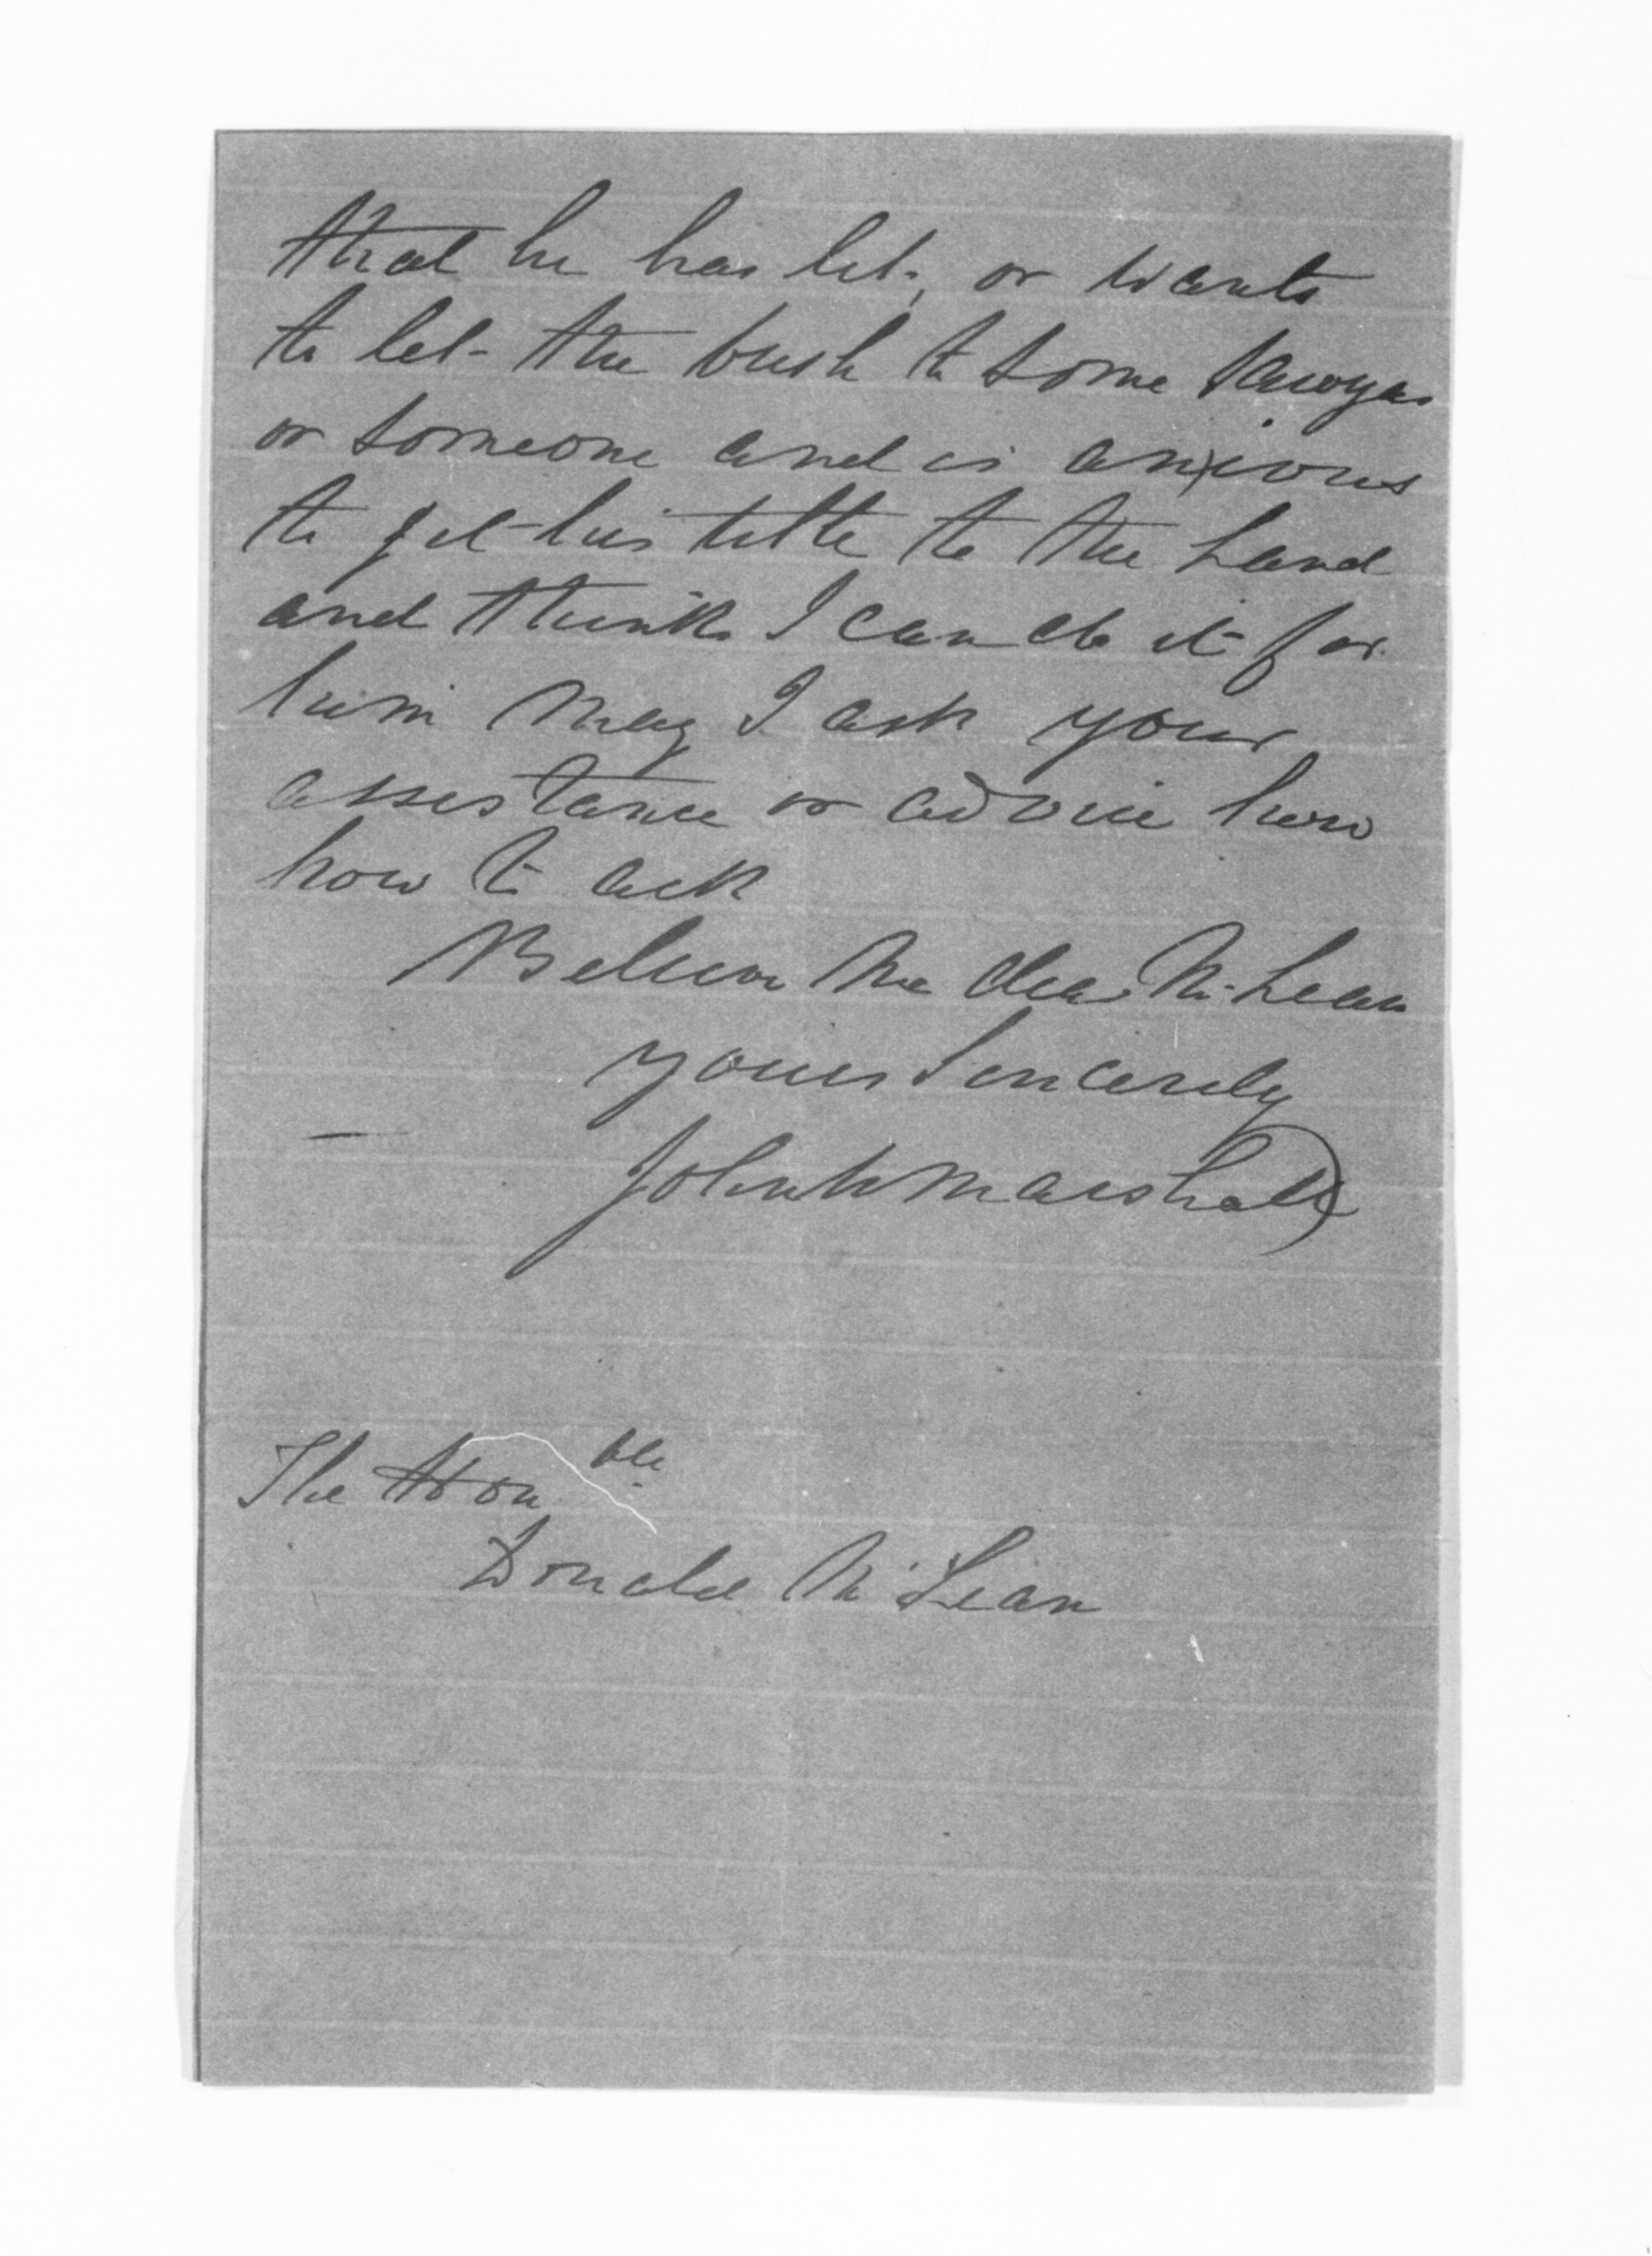 that he has let, or wants
to let the bush to some Sawyers
or someone and is anxious
to get his title to the Land
and thinks I can do it for
him May I ask your
assistance or advice how
how to act
Believe me dear McLean
yours Sincerely
John W Marshall
The Honble
Donald McLean